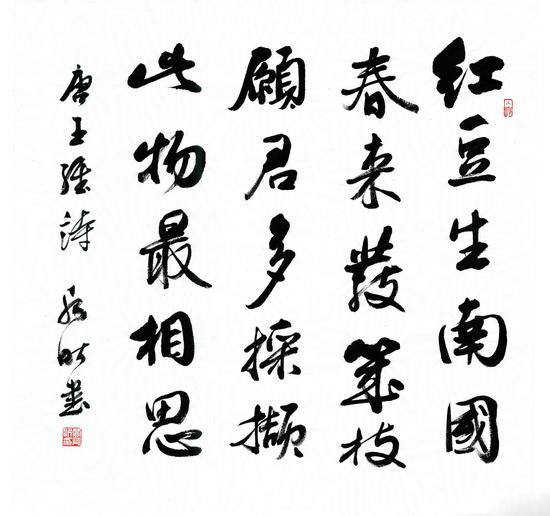 紅豆生南國
春来發幾枝
願君多採擷
此物最相思
唐王維詩 書